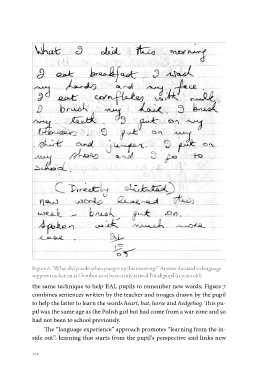 What I did this morning
I eat breakfast. I wash
my hands and my face
I eat cornflakes with milk
I brush my hair. I brush
my teeth. I put on my
trousers. I put on my
shirt and jumper. I put on
my shoes and I go to
school.
(Directly dictated)
new words learned this
week - brush, put on.
Spoken with much more
ease.
the same technique to help EAL pupils to remember new words. Figure 7
combines sentences written by the teacher and images drawn by the pupil
to help the latter to learn the words heart, bat, horse and hedgehog. This pu-
pil was the same age as the Polish girl but had come from a war zone and so
had not been to school previously.
The "language experience" approach promotes "learning from the in-
side out": learning that starts from the pupil's perspective and links new